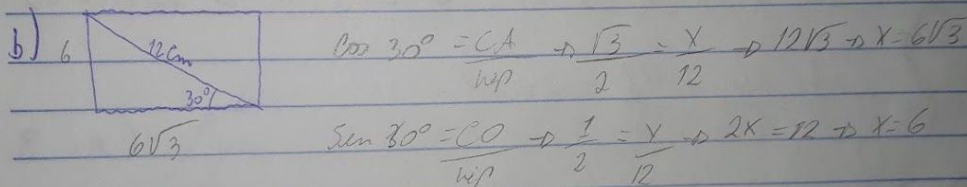 b) 6 12cm 30° 6√3
Cos 30° = CA/hip → √3/2 = x/12 → 12√3 → x = 6√3
Sen 30° = CO/hip → 1/2 = y/12 → 2x = 12 → x = 6